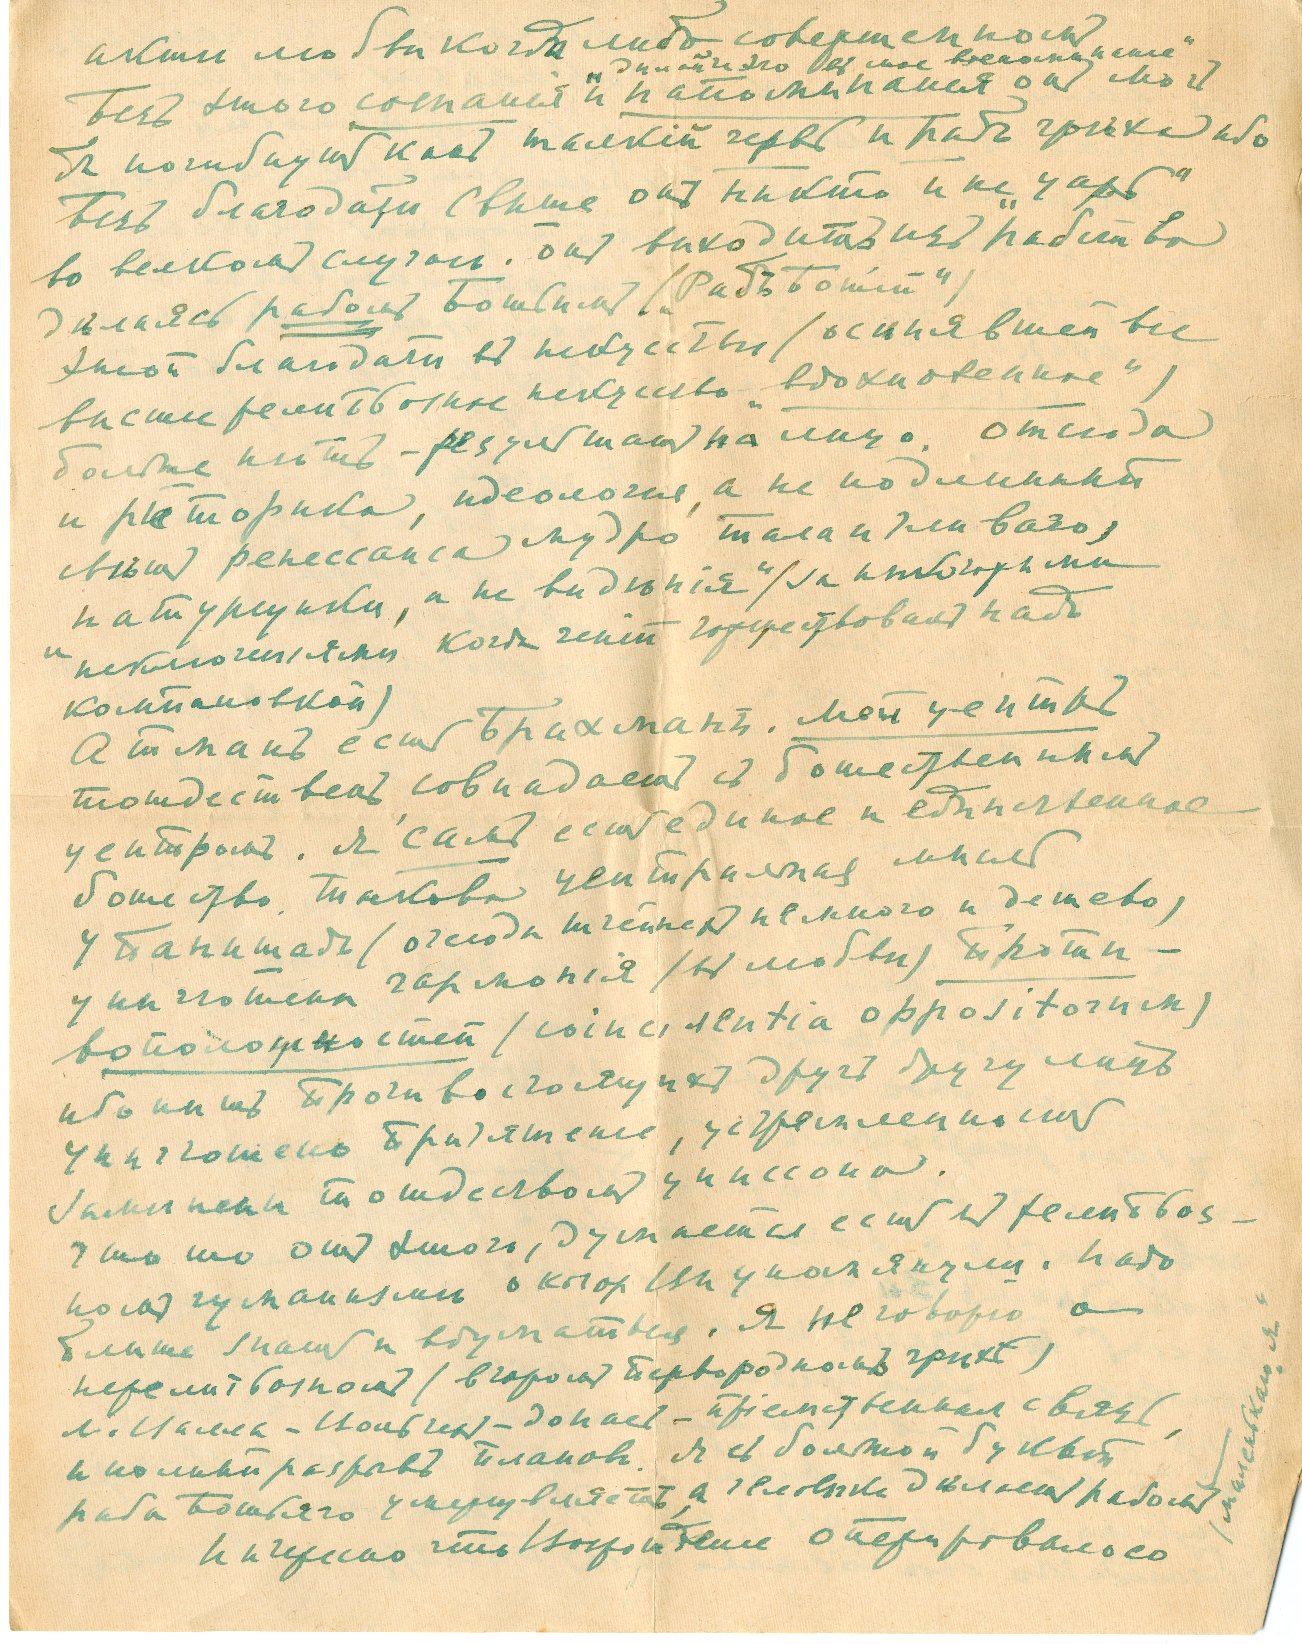 акты любви когда либо совершенномъ
"Дѣлайте это въ мое воспоминаніе"
безъ этого сознанія и напоминанія онъ могъ
бы погибнуть какъ жалкій червь и рабъ грѣха ибо
безъ благодати свыше онъ никто и не "царь"
во всякомъ случаѣ. Онъ выходитъ изъ рабства
дѣлаясь рабомъ Божьимъ ("Рабъ Божій")
этой благодати въ искусствѣ (осѣнявшей все
высшее религіозное искусство "вдохновенное")
больше нѣтъ – результатъ на лицо. Отсюда
и риторика, идеологія, а не подлинный
свѣтъ ренессанса мудро талантливаго,
натурщики, а не видѣнія" (за нѣкоторыми
"исключеніями когда геній торжествовалъ надъ
компановкой)
Атманъ есть Брахманъ. Мой центръ
тождественъ, совпадаетъ съ божественнымъ
центромъ. Я самъ есмь единое и единственное
божество. Такова центральная мысль
Упанишадъ (отсюда немного и дешево)
уничтожена гармонія (въ любви) проти-
воположностей (coincidentia oppositorum)
ибо нитъ противостоящихъ другъ другу лицъ
уничтожено притяженіе, устремленность
замѣнены тождествомъ унисона.
Что то отъ этого, думается есть въ религіоз-
номъ гуманизмѣ о котор Вы упомянули. Надо
ближе знать и вдуматься. Я не говорю о
нерелигіозномъ (второмъ первородномъ грѣхѣ)
м. Ницше – – – пріемственная связь,
и полный разрывъ плановъ. Я съ большой буквы
раба Божьяго умерщвляетъ, а человѣка дѣлаетъ рабомъ
(маленькаго "я"
Интересно что Возрожденіе оперировало со